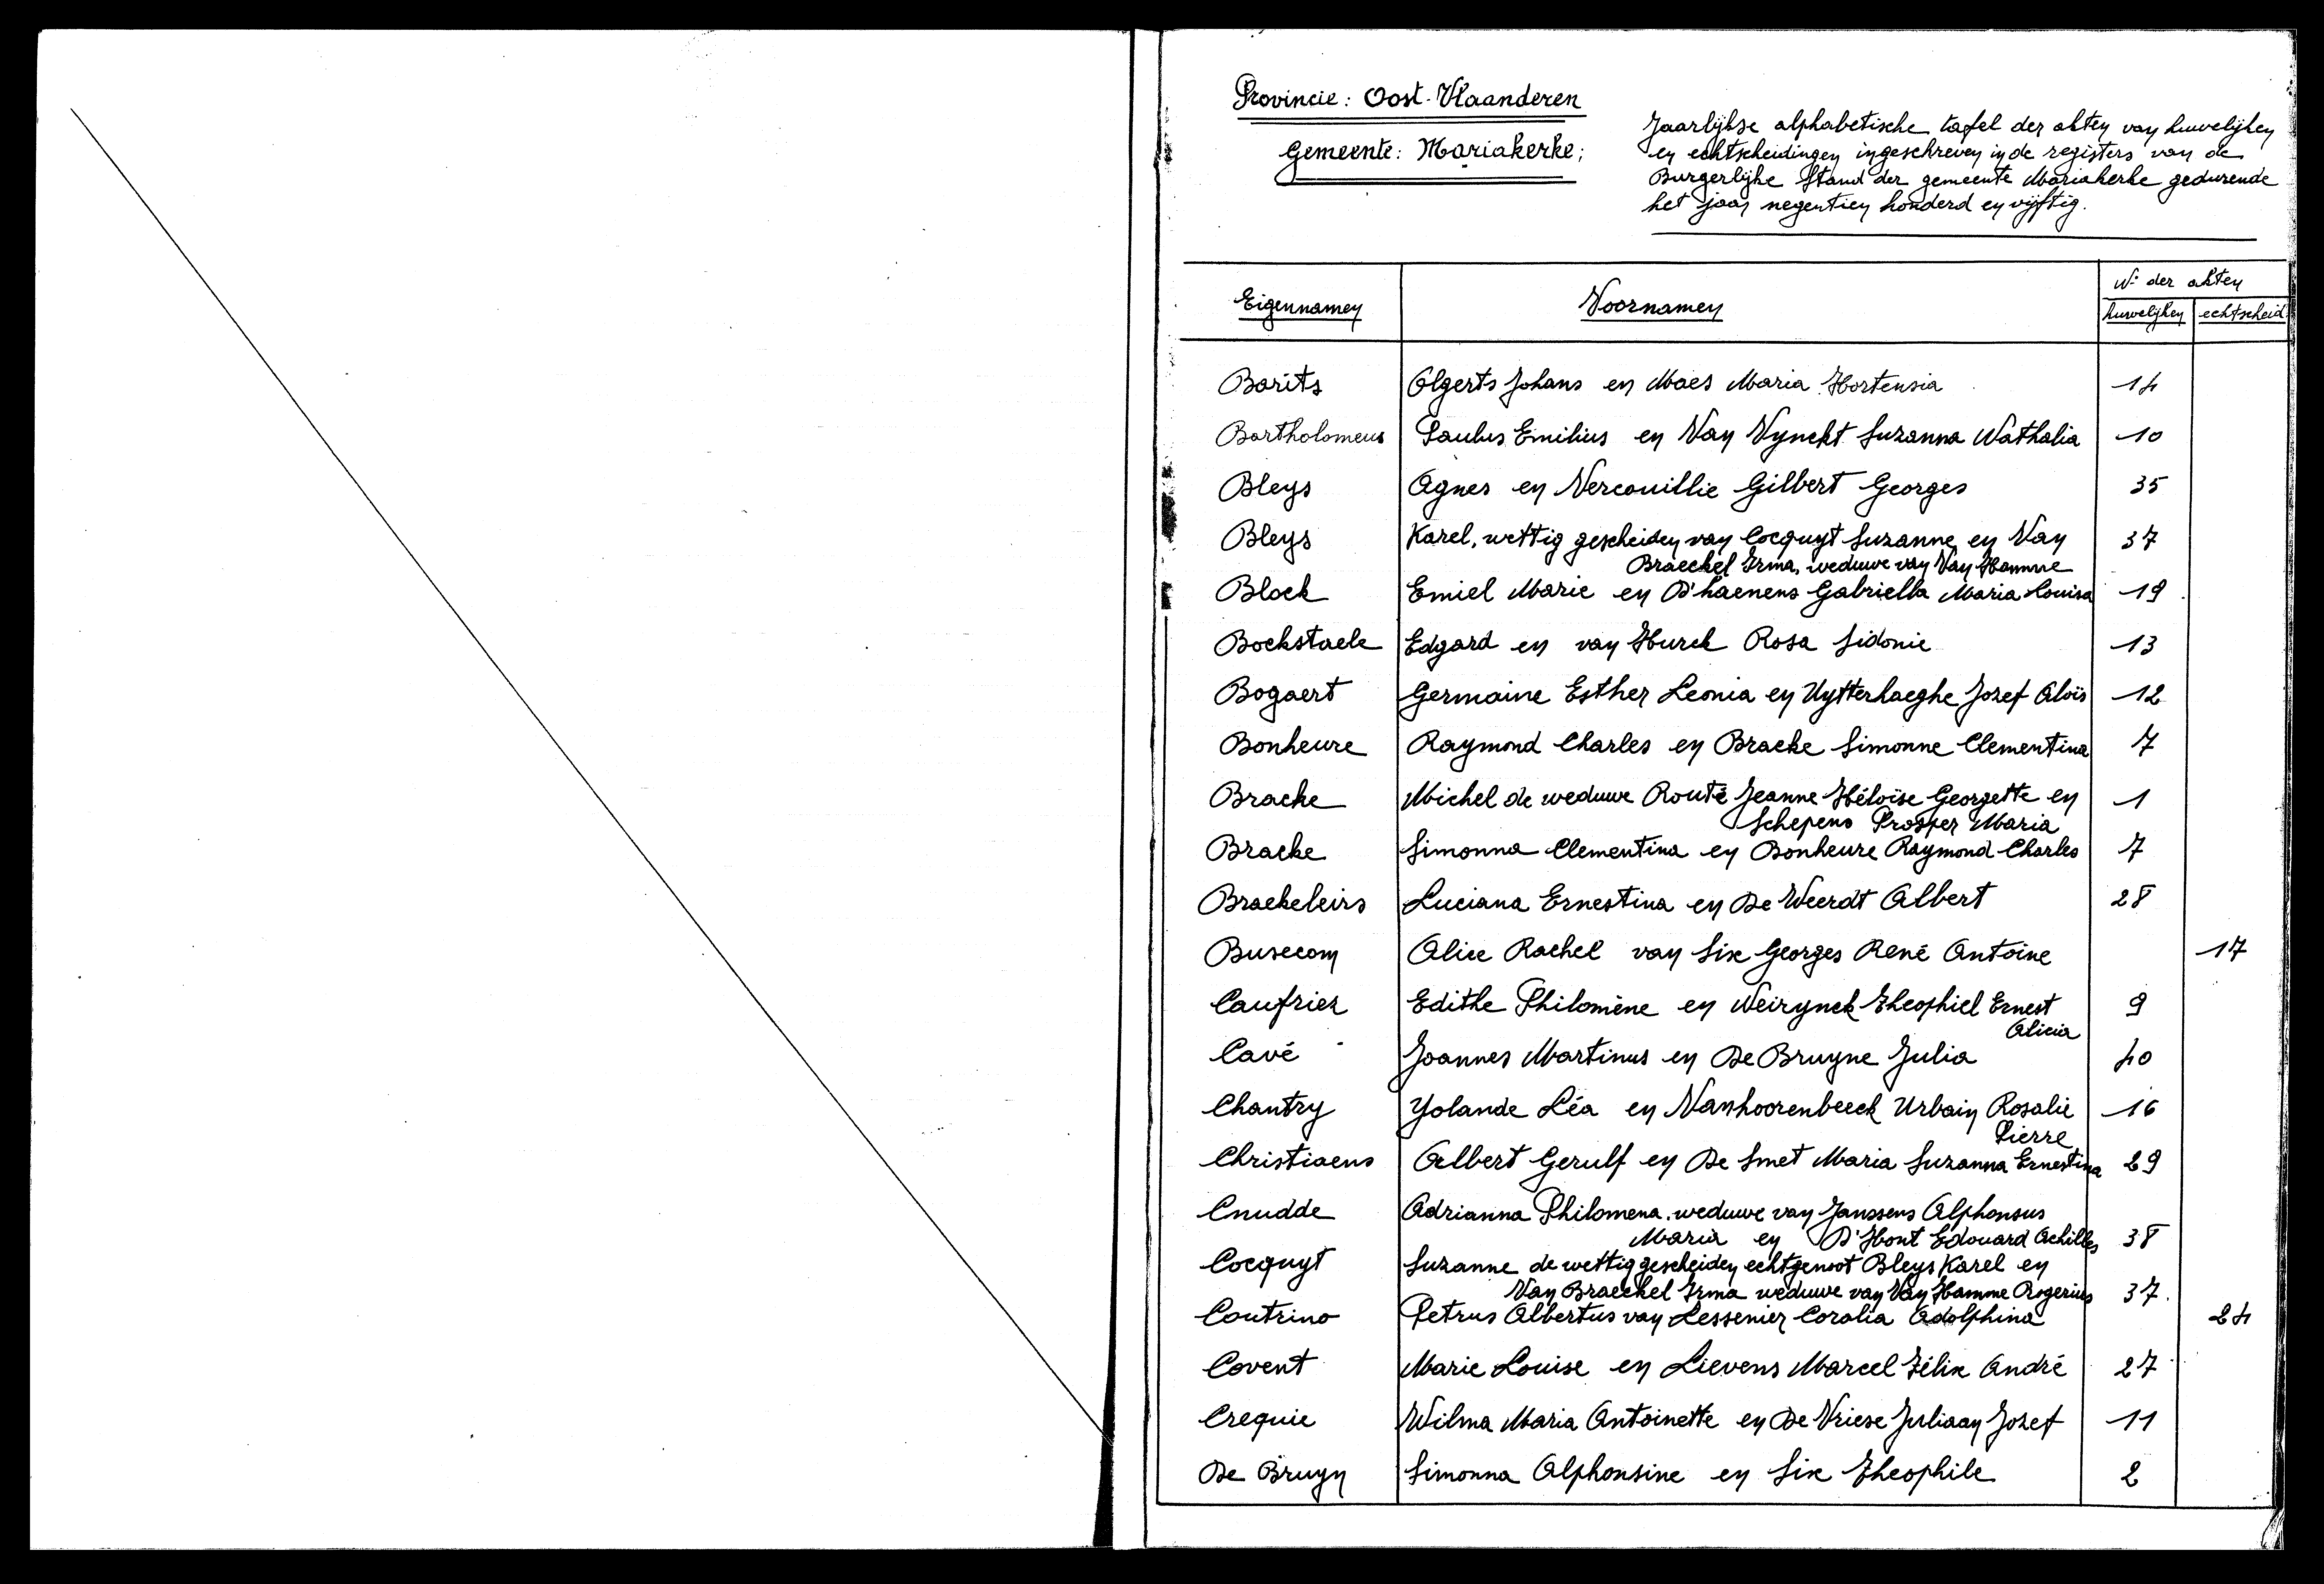 Provincie: Oost-Vlaanderen
Gemeente: Mariakerke;
Jaarlijkse alphabetische tafel der akten van huwelijken
en echtscheidingen ingeschreven in de registers van de
Burgerlijke Stand der gemeente Mariakerke gedurende
het jaar negentien honderd en vijftig.
Eigennamen Voornamen Nr der akten
huwelijken echtscheid.
Barits Olgerts Johans en Maes Maria Hortensia 14
Bartholomeus Paulus Emilius en Van Vynckt Suzanna Nathalia 10
Bleys Agnes en Vercouillie Gilbert Georges 35
Bleys Karel, wettig gescheiden van Cocquyt Suzanne en Van 37
Braeckel Irma, weduwe van Van Hamme
Block Emiel Marie en D'haenens Gabriella Maria Louisa 19
Bockstaele Edgard en van Hurck Rosa Sidonie 13
Bogaert Germaine Esther Leonia en Uytterhaeghe Jozef Aloïs 12
Bonheure Raymond Charles en Bracke Simonne Clementina 7
Bracke Michel de weduwe Routé Jeanne Héloïse Georgette en 1
Schepens Prosper Maria
Bracke Simonna Clementina en Bonheure Raymond Charles 7
Braekeleirs Luciana Ernestina en De Weerdt Albert 28
Busecom Alice Rachel van Six Georges René Antoine 17
Caufriez Edithe Philomène en Weirynck Theophiel Ernest 9
Alicia
Cavé Joannes Martinus en De Bruyne Julia 40
Chantry Yolande Léa en Vanhoorenbeeck Urbain Rosalie 16
Pierre
Christiaens Albert Gerulf en De Smet Maria Suzanna Ernestina 29
Cnudde Adrianna Philomena, weduwe van Janssens Alphonsus
Maria en D'Hont Edouard Achilles 38
Cocquyt Suzanne de wettig gescheiden echtgenoot Bleys Karel en
Van Braeckel Irma weduwe van Van Hamme Rogerius 37.
Coutrino Petrus Albertus van Lessenier Coralia Adolphina 24
Covent Marie Louise en Lievens Marcel Félix André 27
Crequie Wilma Maria Antoinette en De Vriese Juliaan Jozef 11
De Bruyn Simonna Alphonsine en Six Theophile 2